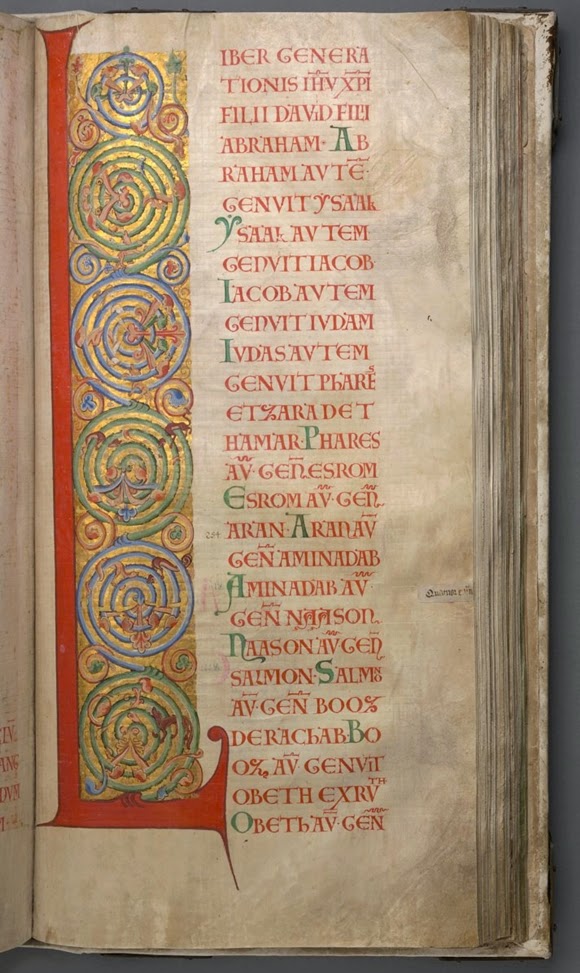 L
IBER GENERA
TIONIS IH̅V XP̅I
FILII DAVID FILII
ABRAHAM· AB
RAHAM AVTE̅·
GENVIT YSAAK
YSAAK AVTEM
GENVIT IACOB·
IACOB AVTEM
GENVIT IVDAM
IVDAS AVTEM
GENVIT PHARES
ET ZARA DE T
HAMAR· PHARES
AV̅· GEN̅ ESROM
ESROM AV̅· GEN̅·
ARAN· ARAN AV̅
GEN̅ AMINADAB
AMINADAB AV̅·
GEN̅ NAASON·
NAASON AV̅ GEN̅
SALMON· SALMO̅
AV̅· GEN̅ BOOZ
DE RACHAB· BO
OZ, AV̅ GENVIT
OBETH EX RVTH
OBETH AV̅· GEN̅